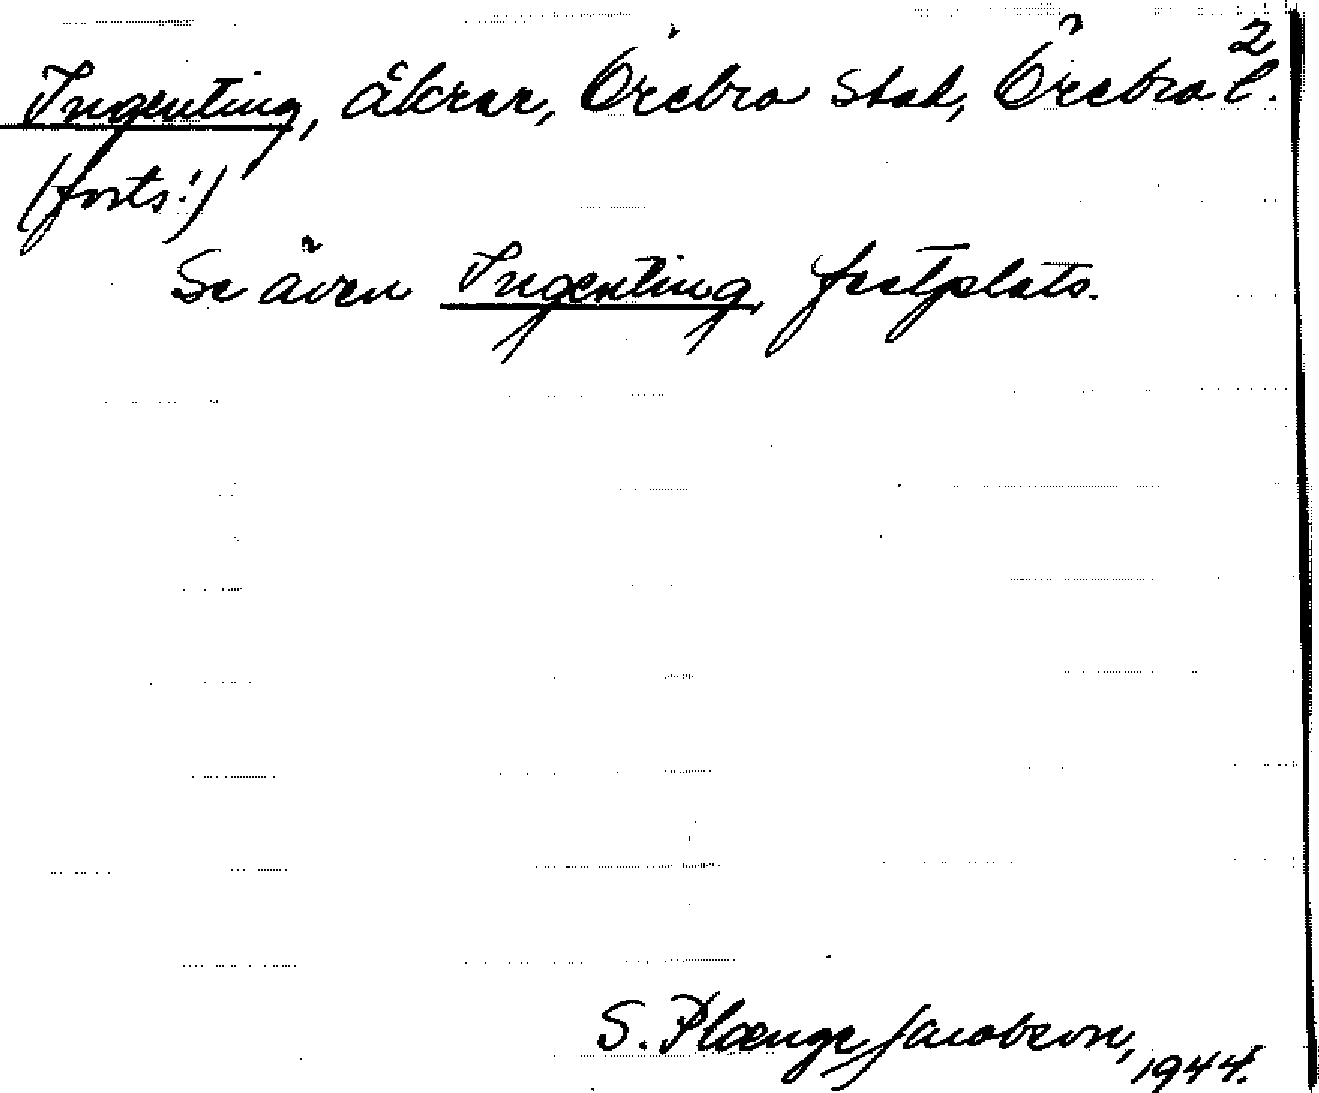 2
Ingenting, åkrar, Örebro stad, Örebro l.
(forts.!)
Se även Ingenting, festplats.
S. Plænge Jacobson,
1944.